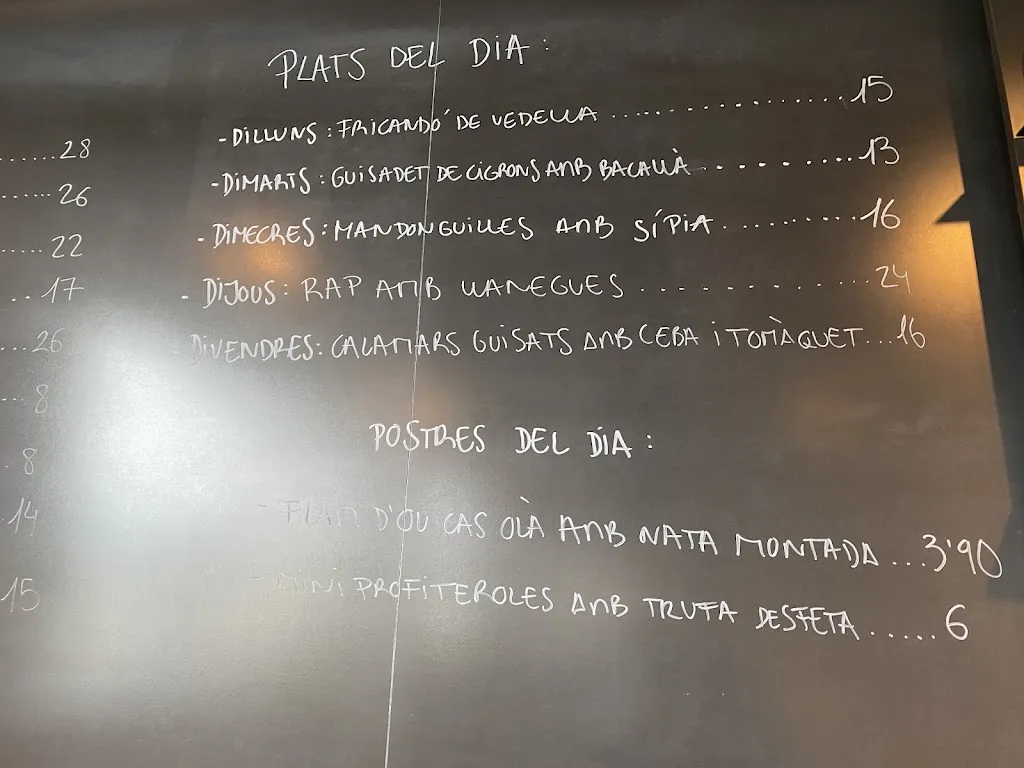 PLATS DEL DIA:
- DILLUNS: FRICANDÓ DE VEDELLA .............. 15
- DIMARTS: GUISADET DE CIGRONS AMB BACALLÀ ......... 13
- DIMECRES: MANDONGUILLES AMB SÍPIA ......... 16
- DIJOUS: RAP AMB LLANEGUES ............. 24
DIVENDRES: CALAMARS GUISATS AMB CEBA I TOMÀQUET ... 16
POSTRES DEL DIA:
- FLAM D'OU CAS OLÀ AMB NATA MONTADA ... 3'90
- MINI PROFITEROLES AMB TRUFA DESFETA ..... 6
..... 28
...... 26
.... 22
.. 17
... 26
... 8
. 8
14
15